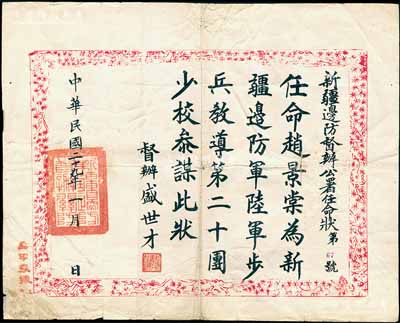 新疆邊防督辦公署任命狀第 號
任命趙景棠為新
疆邊防軍陸軍步
兵教導第二十團
少校參謀此狀
督辦盛世才
中華民國二十九年一月 日